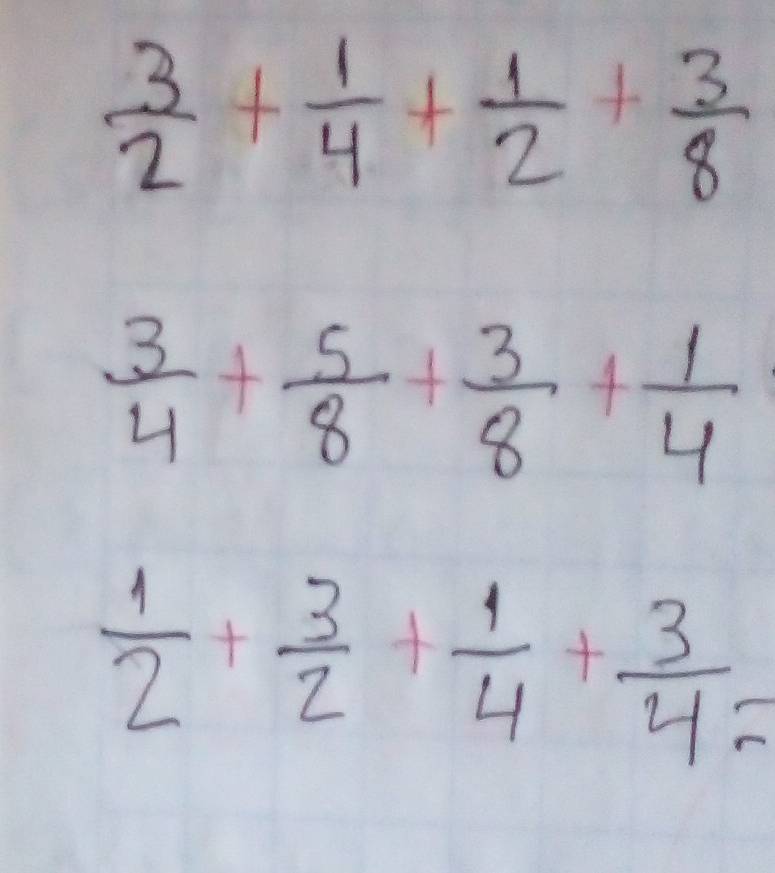 3/2 + 1/4 + 1/2 + 3/8
3/4 + 5/8 + 3/8 + 1/4
1/2 + 3/2 + 1/4 + 3/4 =